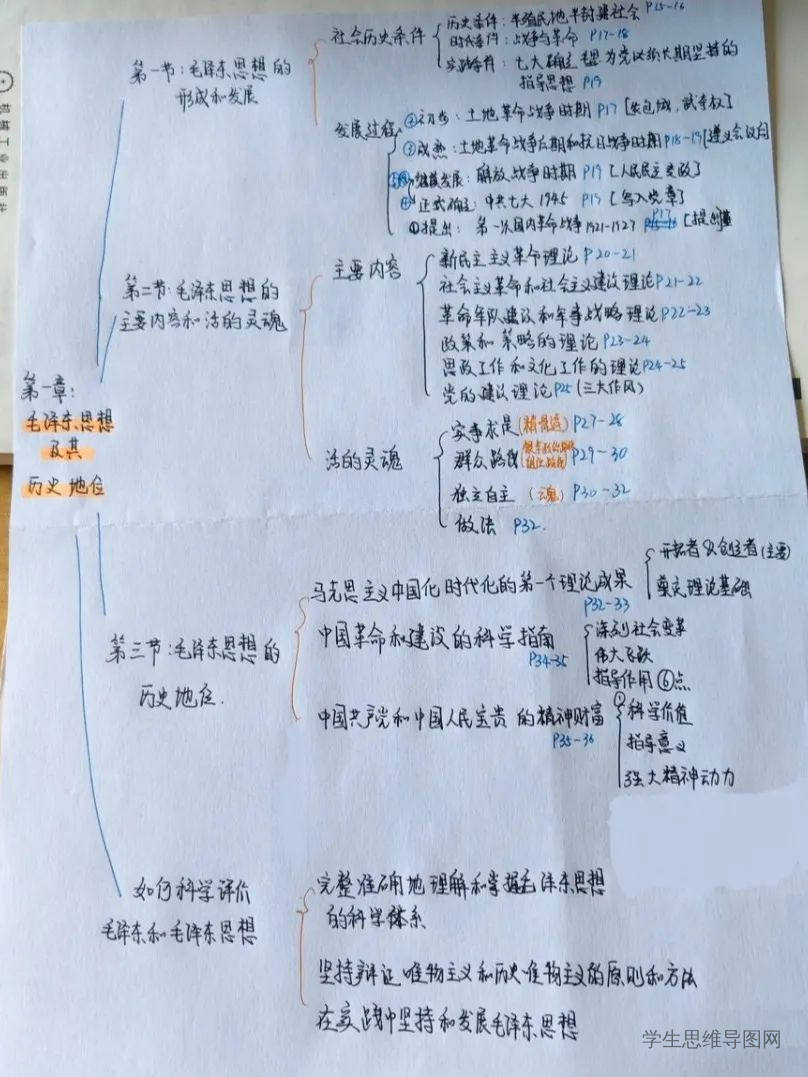 机械工业出版社
第一章:
毛泽东思想
及其
历史地位
第一节:毛泽东思想的
形成和发展
社会历史条件
历史条件:半殖民地半封建社会 P15-16
时代条件:战争与革命 P17-18
实践条件:七大确立毛思为党必须长期坚持的
指导思想 P19
发展过程
②初步:土地革命战争时期 P17 [农包城,武夺权]
③成熟:土地革命战争后期和抗日战争时期 P18-19 [遵义会议后]
继续发展:解放战争时期 P19 [人民民主专政]
④正式确立:中共七大 1945 P19 [写入党章]
①提出:第一次国内革命战争 1921-1927 P17 [提出
第二节:毛泽东思想的
主要内容和活的灵魂
主要内容
新民主主义革命理论 P20-21
社会主义革命和社会主义建设理论 P21-22
革命军队建设和军事战略理论 P22-23
政策和策略的理论 P23-24
思政工作和文化工作的理论 P24-25
党的建设理论 P25 (三大作风)
活的灵魂
实事求是(精髓) P27-28
群众路线 P29-30
独立自主 (魂) P30-32
做法 P32.
第三节:毛泽东思想的
历史地位.
马克思主义中国化时代化的第一个理论成果
P32-33
开拓者&创造者(主要)
奠定理论基础
中国革命和建设的科学指南
P34-35
深刻社会变革
伟大飞跃
指导作用⑥点
中国共产党和中国人民宝贵的精神财富
P35-36
①科学价值
指导意义
强大精神动力
如何科学评价
毛泽东和毛泽东思想
完整准确地理解和掌握毛泽东思想
的科学体系
坚持辩证唯物主义和历史唯物主义的原则和方法
在实践中坚持和发展毛泽东思想
学生思维导图网